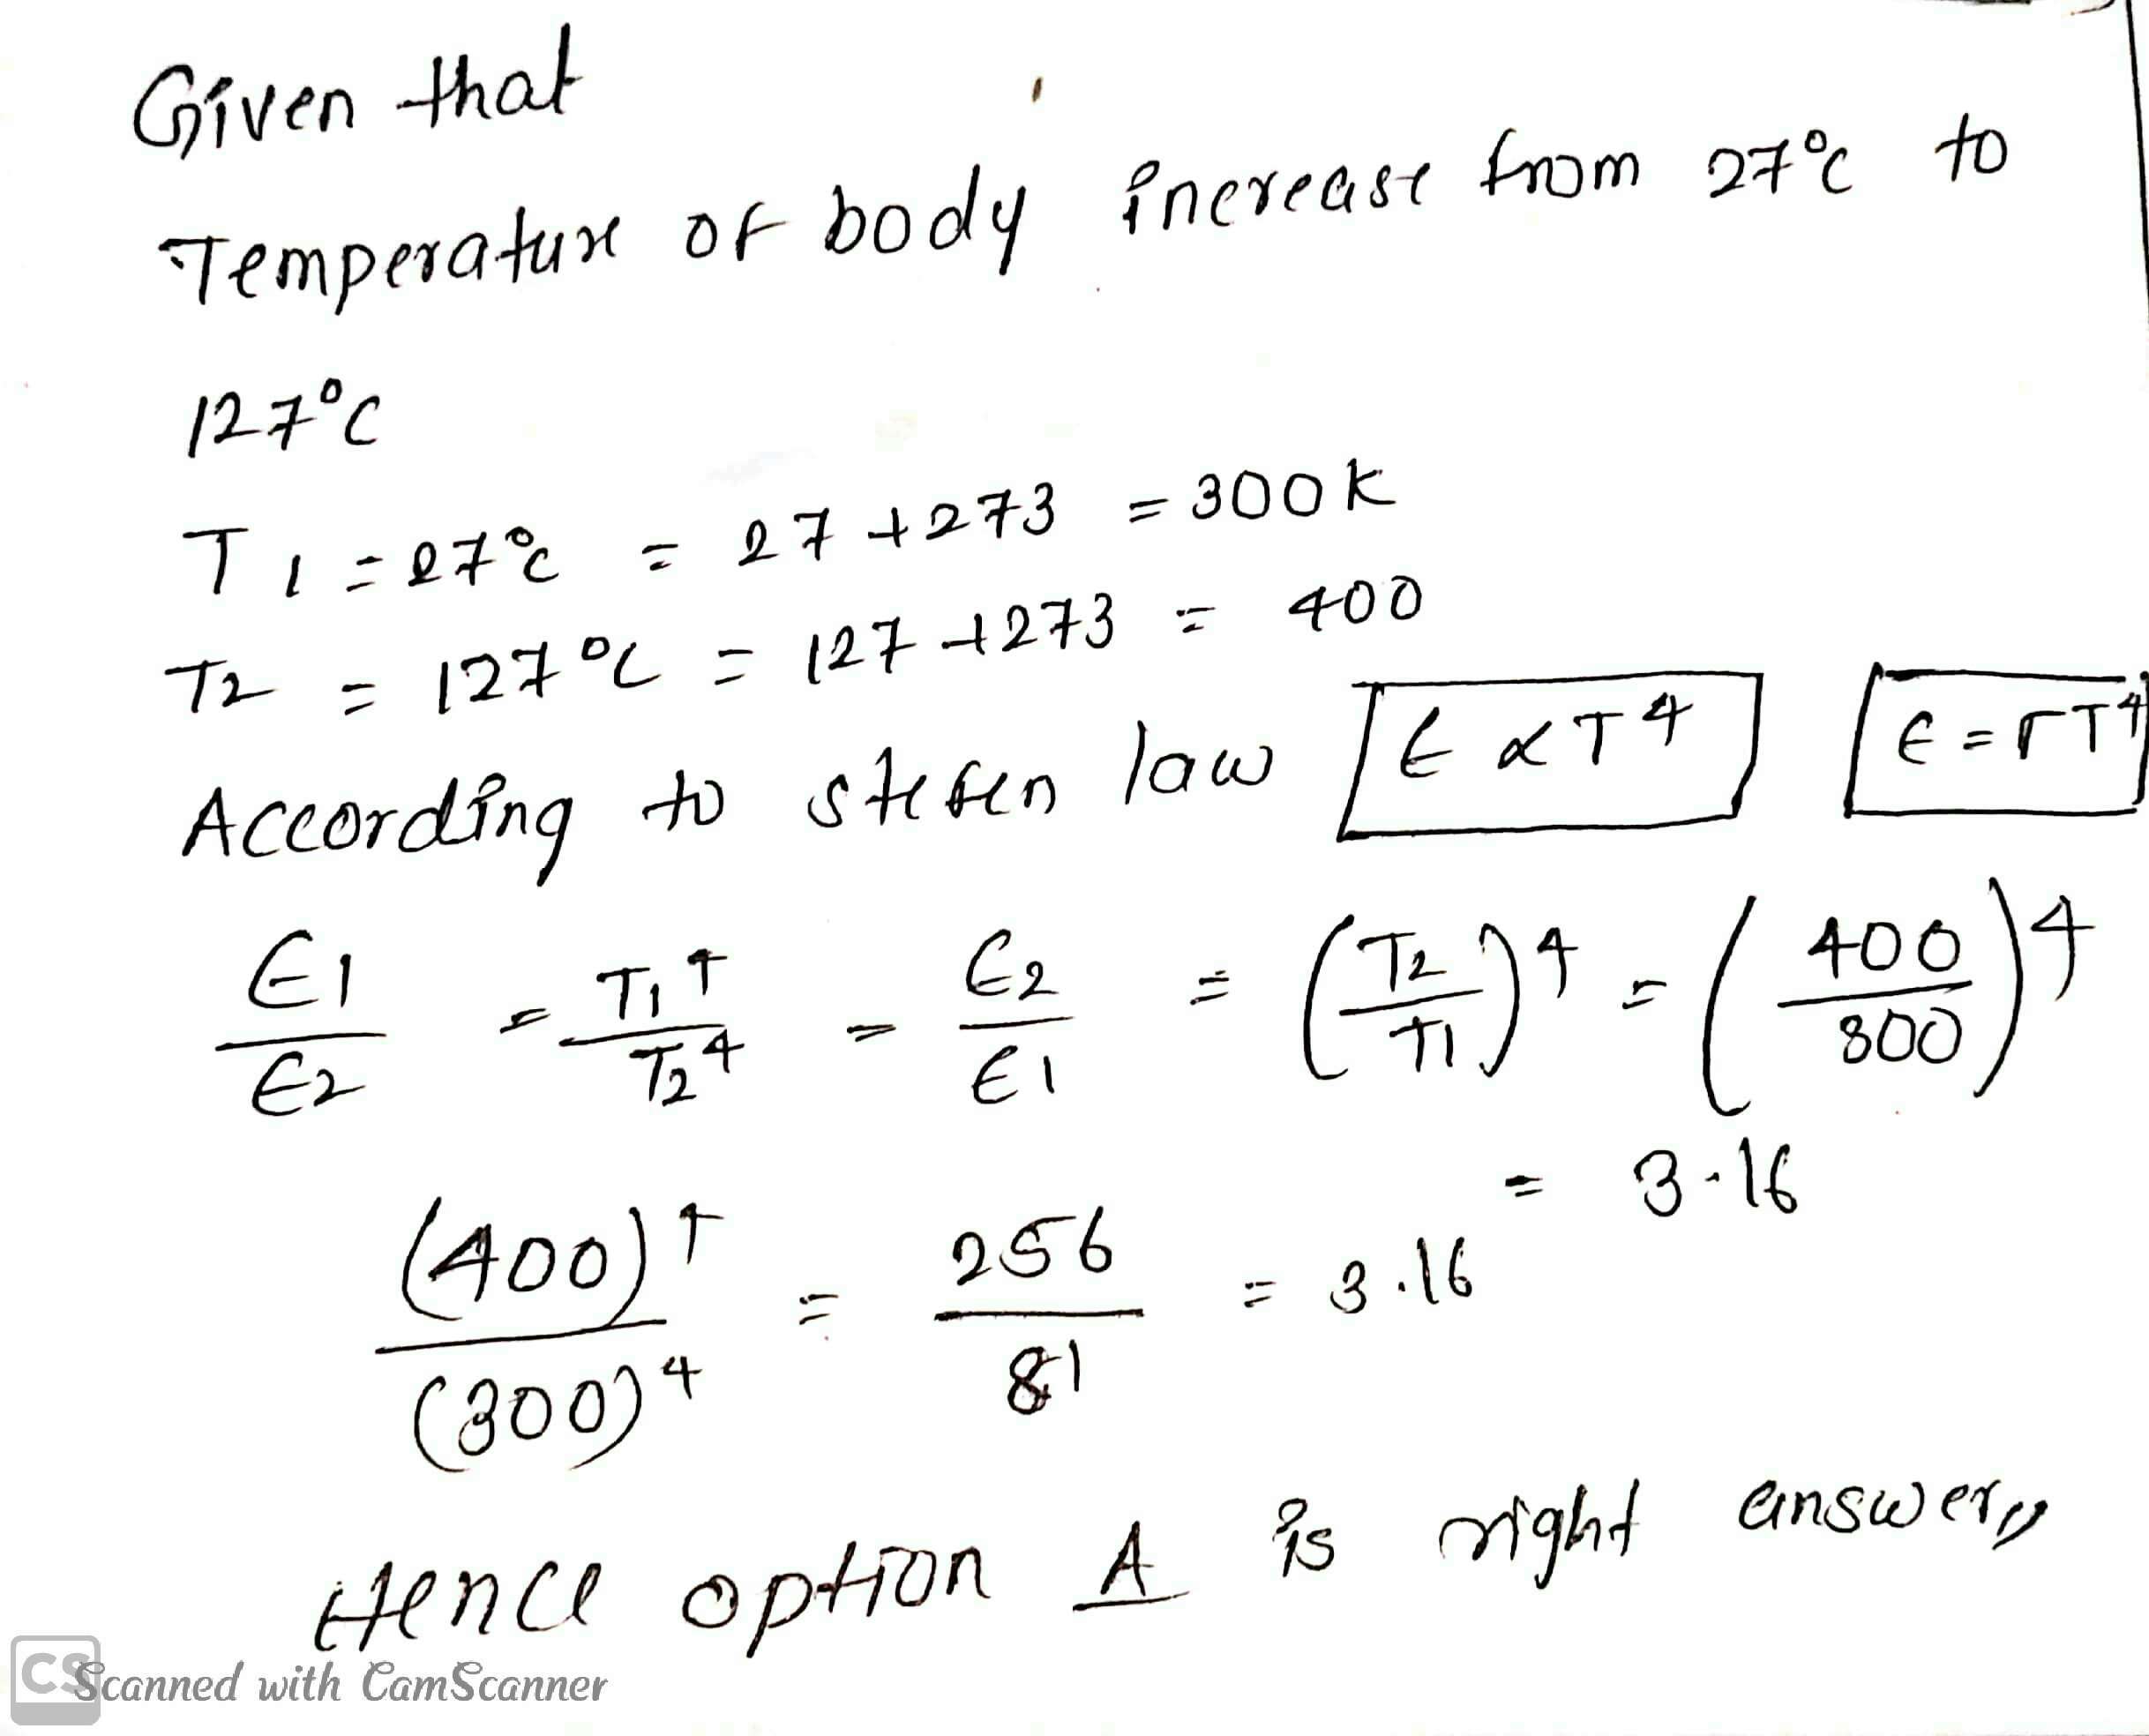 Given that
Temperature of body increase from 27°c to
127°C
T1 = 27°c = 27 + 273 = 300k
T2 = 127°C = 127 + 273 = 400
According to stefen law E ∝ T4 E = σT4
E1/E2 = T1^4/T2^4 = E2/E1 = (T2/T1)^4 = (400/300)^4
= 3.16
(400)^4/(300)^4 = 256/81 = 3.16
Hence option A is right answer,,
CS Scanned with CamScanner